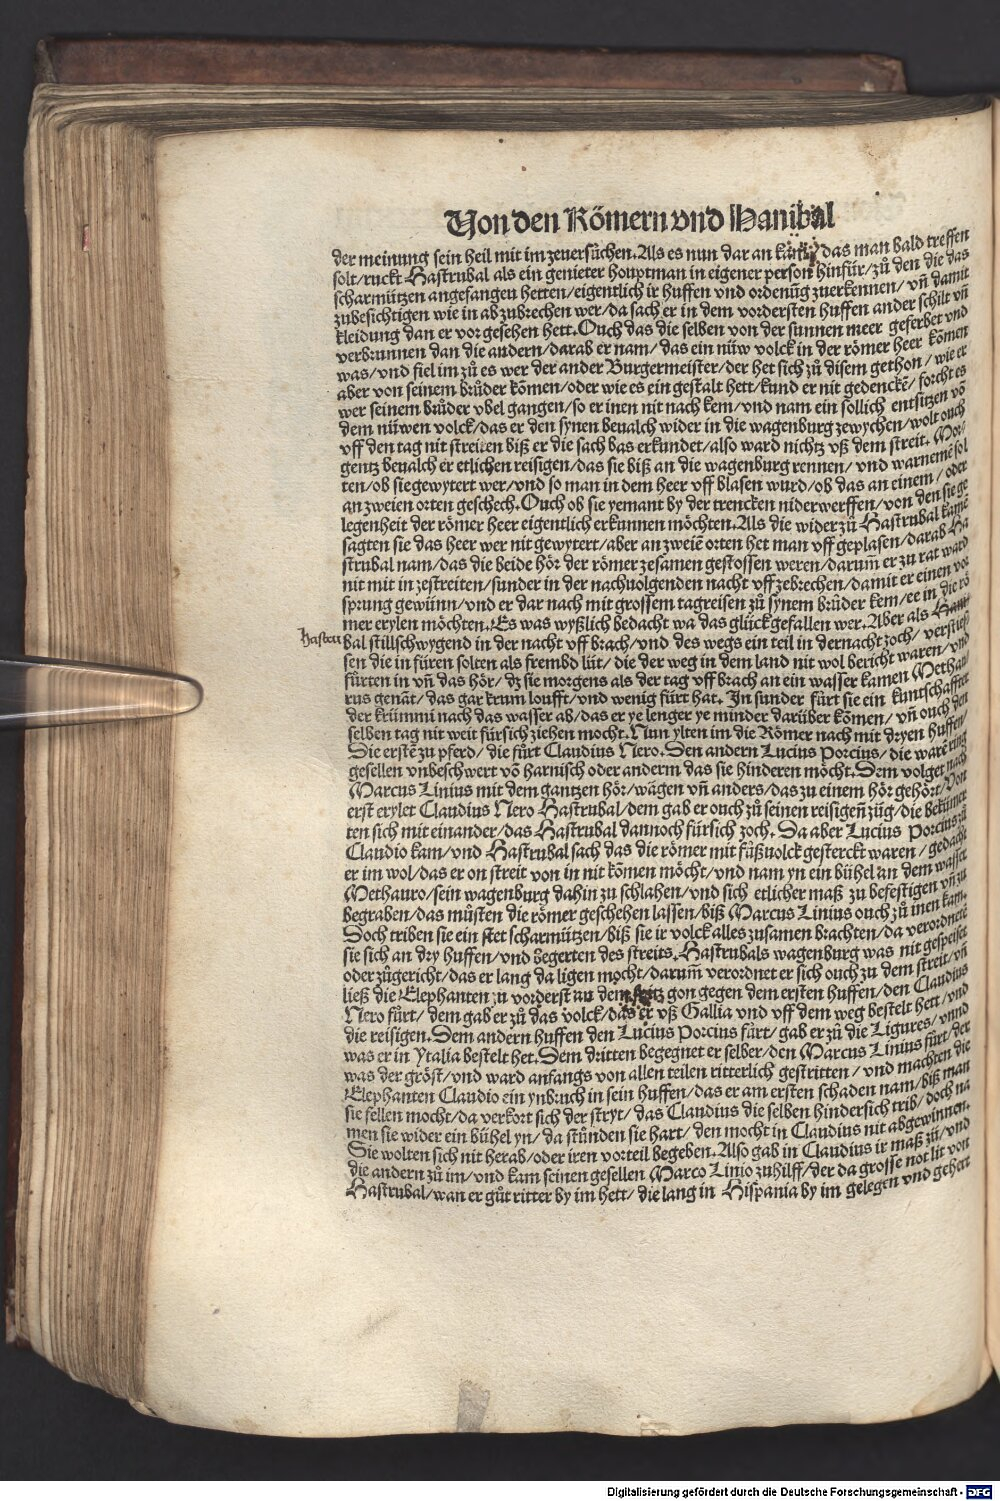 Von den Römern vnd Hanibal
der meinung sein heil mit im zeuersůchen. Als es nun dar an kam / das man bald treffen
solt / ruckt Hastrubal als ein genieter houptman in eigener person hinfür / zů den die das
scharmützen angefangen hetten / eigentlich ir huffen vnd ordenūg zuerkennen / vñ damit
zubesichtigen wie in abzubrechen wer / da sach er in dem vordersten huffen ander schilt vñ
kleidung dan er vor gesehen hett. Ouch das die selben von der sunnen meer geferbet vnd
verbrunnen dan die andern / darab er nam / das ein nüw volck in der römer heer kōmen
was / vnd fiel im zů es wer der ander Burgermeister / der het sich zů disem gethon / wie er
aber von seinem brůder kōmen / oder wie es ein gestalt hett / kund er nit gedenckē / forcht es
wer seinem brůder vbel gangen / so er inen nit nach kem / vnd nam ein sollich entsitzen vō
dem nüwen volck / das er den synen beualch wider in die wagenburg zewychen / wolt ouch
vff den tag nit streiten biß er die sach bas erkundet / also ward nichtz vß dem streit. Mor⸗
gentz beualch er etlichen reisigen / das sie biß an die wagenburg rennen / vnd warnemē sol
ten / ob sie gewytert wer / vnd so man in dem heer vff blasen wurd / ob das an einem / oder
an zweien orten geschech. Ouch ob sie yemant by der trencken niderwerffen / von den sie ge
legenheit der römer heer eigentlich erkunnen möchten. Als die wider zů Hastrubal kamē
sagten sie das heer wer nit gewytert / aber an zweiē orten het man vff geplasen / darab Ha
strubal nam / das die beide hör der römer zesamen gestossen weren / darum er zu rat ward
nit mit in zestreiten / sunder in der nachuolgenden nacht vff zebrechen / damit er einen vor
sprung gewünn / vnd er dar nach mit grossem tagreisen zů synem brůder kem / ee in die rö
mer erylen möchten. Es was wyßlich bedacht wa das glück gefallen wer. Aber als Hani
hastru bal stillschwygend in der nacht vff brach / vnd des wegs ein teil in dernacht zoch / verstieß
sen die in füren solten als frembd lüt / die der weg in dem land nit wol bericht waren / vnd
fürten in vñ das hör / dz sie morgens als der tag vff brach an ein wasser kamen Methau
rus genāt / das gar krum loufft / vnd wenig fürt hat. In sunder fürt sie ein kuntschaffter
der krümmi nach das wasser ab / das er ye lenger ye minder darüber kōmen / vñ ouch den
selben tag nit weit fürsich ziehen mocht. Nun ylten im die Römer nach mit dryen huffen /
Die erstē zu pferd / die fůrt Claudius Nero. Den andern Lucius Porcius / die warē ring
gesellen vnbeschwert vō harnisch oder anderm das sie hinderen möcht. Dem volget nach
Marcus Linius mit dem gantzen hör / wägen vñ anders / das zu einem hör gehört / Von
erst erylet Claudius Nero Hastrubal / dem gab er ouch zů seinen reisigen züg / die bekümer
ten sich mit einander / das Hastrubal dannoch fürsich zoch. Da aber Lucius Porcius zů
Claudio kam / vnd Hastrubal sach das die römer mit fůßuolck gesterckt waren / gedacht
er im wol / das er on streit von in nit kōmen möcht / vnd nam yn ein bühel an dem wasser
Methauro / sein wagenburg dahin zu schlahen / vnd sich etlicher maß zu befestigen vñ zu
begraben / das můsten die römer geschehen lassen / biß Marcus Linius ouch zů inen kam.
Doch triben sie ein stet scharmützen / biß sie ir volck alles zusamen brachten / da verordnetē
sie sich an dry huffen / vnd begerten des streits. Hastrubals wagenburg was nit gespeiset
oder zůgericht / das er lang da ligen mocht / darum̄ verordnet er sich ouch zu dem streit / vñ
ließ die Elephanten zu vorderst an dem spitz gon gegen dem ersten huffen / den Claudius
Nero fůrt / dem gab er zů das volck / das er vß Gallia vnd vff dem weg bestelt hett / vnd
die reisigen. Dem andern huffen den Lucius Porcius fůrt / gab er zů die Ligures / vnnd
was er in Ytalia bestelt het. Dem dritten begegnet er selber / den Marcus Linius fůrt / der
was der gröst / vnd ward anfangs von allen teilen ritterlich gestritten / vnd machten die
Elephanten Claudio ein ynbruch in sein huffen / das er am ersten schaden nam / biß man
sie fellen mocht / da verkort sich der stryt / das Claudius die selben hindersich trib / doch na
men sie wider ein bühel yn / da stůnden sie hart / den mocht in Claudius nit abgewinnen.
Sie wolten sich nit herab / oder iren vorteil begeben. Also gab in Claudius ir maß zů / vnd
die andern zů im / vnd kam seinen gesellen Marco Linio zuhilff / der da grosse not lit von
Hastrubal / wan er gůt ritter by im hett / die lang in Hispania by im gelegen vnd gehert
Digitalisierung gefördert durch die Deutsche Forschungsgemeinschaft - DFG